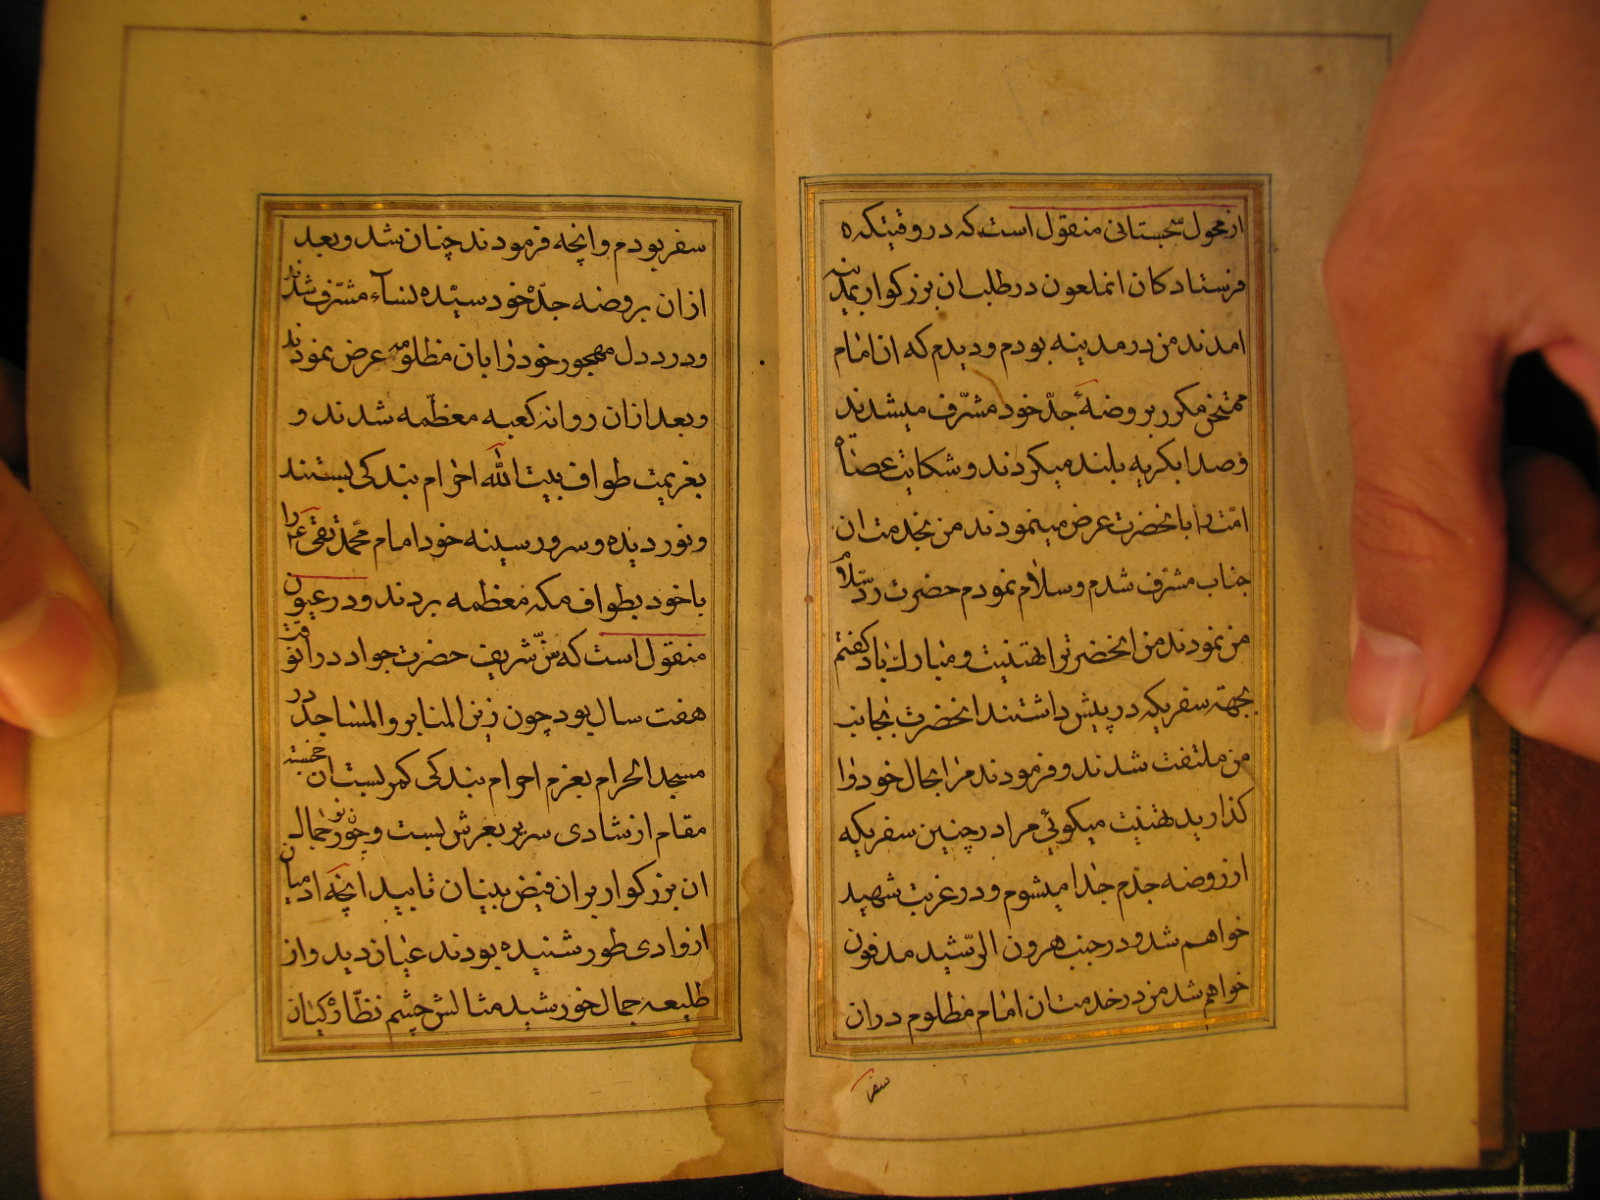 از محول سجستانی منقول است که در وقتیکه
فرستادکان انملعون در طلب ان بزرکوار بمدینه
امدند من در مدینه بودم و دیدم که ان امام
ممتحن مکرر بر وضهٔ جدّ خود مشرّف میشدند
و صدا بکریه بلند میکردند و شکایت عصاة
امّت را با نحضرت عرض مینمودند من بخدمت ان
جناب مشرّف شدم و سلام نمودم حضرت ردّ سلام
من نمودند من انحضرت را تهنیت و مبارک باد کفتم
بجهة سفریکه در پیش داشتند انحضرت بجانب
من ملتفت شدند و فرمودند مرا بحال خود وا
کذارید تهنیت میکوئی مرا در چنین سفریکه
از روضه جدّم جدا میشوم و در غربت شهید
خواهم شد و در جنب هرون الرّشید مدفون
خواهم شد من در خدمت ان امام مظلوم در ان
سفر
سفر بودم و انچه فرمودند چنان شد و بعد
از ان بروضه جدّهٔ خود سیّده نسآء مشرّف شدند
و درد دل مهجور خود را بان مظلومه عرض نمودند
و بعد از ان روانه کعبه معظّمه شدند و
بعزیمت طواف بیت الله احرام بندکی بستند
و نور دیده و سرور سینه خود امام محمّد تقی ع را
با خود بطواف مکه معظمه بردند و در عیون
منقول است که سنّ شریف حضرت جواد در انوقت
هفت سال بود چون زین المنابر و المساجد در
مسجد الحرام بعزم احرام بندکی کمر بست ان خجسته
مقام از شادی سر بر بعرش بست و چون نور جمال
ان بزرکوار بر ان فیض بنیان تابید انچه ادمیان
از وادی طور شنیده بودند عیان دید و از
طلیعه جمال خورشید مثالش چشم نظّارکیان